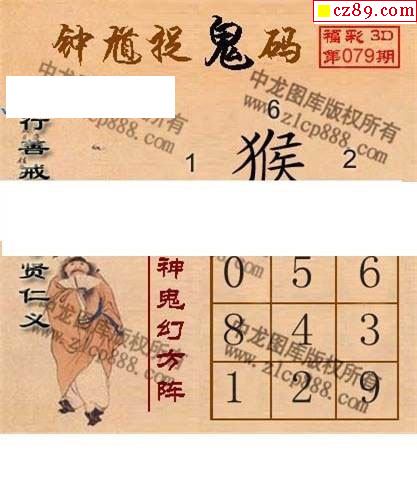 cz89.com
钟馗捉鬼码
福彩3D
第079期
行善戒
6
1
猴
2
贤仁义
神鬼幻方阵
0 5 6
8 4 3
1 2 9
中龙图库版权所有
www.zlcp888.com
中龙图库版权所有
www.zlcp888.com
中龙图库版权所有
www.zlcp888.com